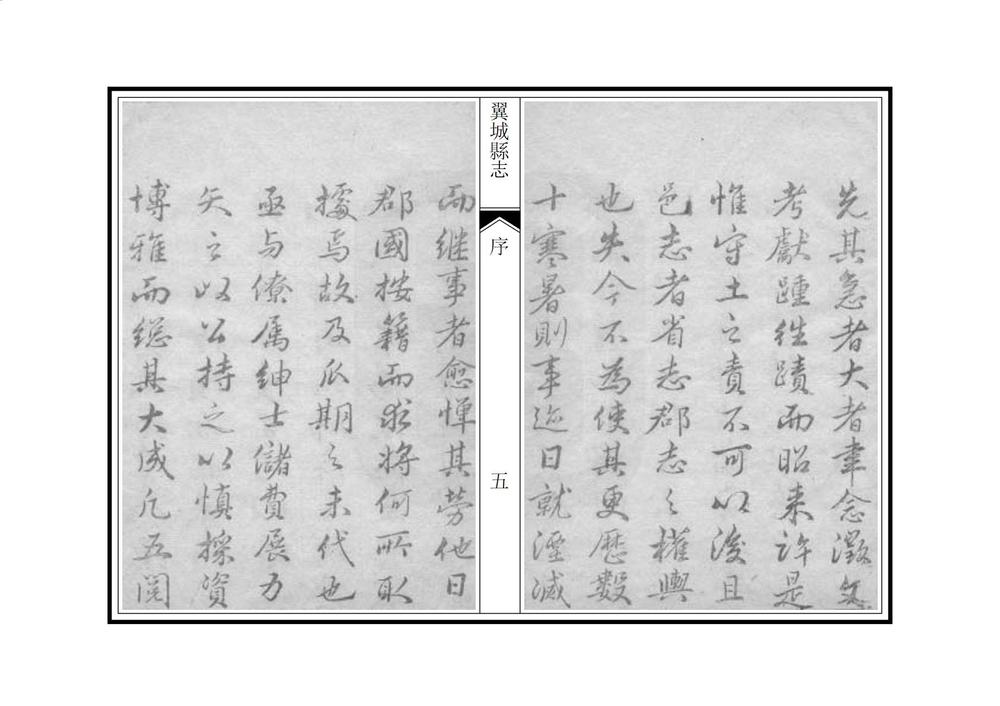 先其急者大者聿念徵文
考獻踵往蹟而昭来許是
惟守土之責不可以後且
邑志者省志郡志之權輿
也失今不為使其更歷數
十寒暑則事迹日就湮滅
翼城縣志
序
五
而继事者愈憚其勞他日
郡國按籍而求將何所取
據焉故及瓜期之未代也
亟与僚属绅士儲費展力
矢之以公持之以慎採資
博雅而総其大成凡五閲